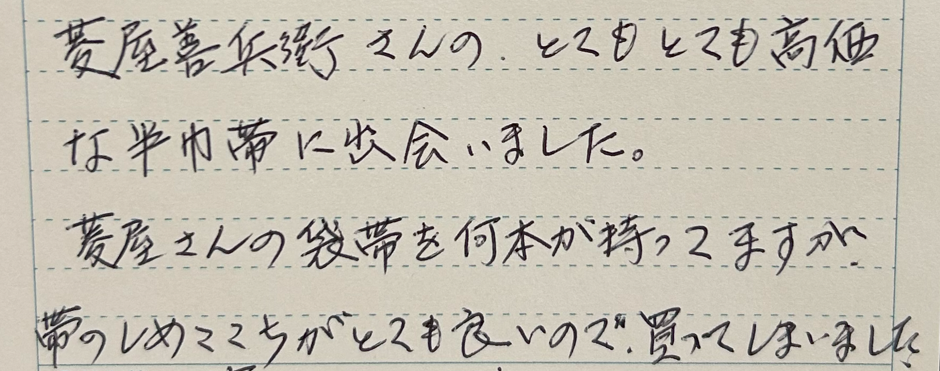 菱屋善兵衛さんの、とてもとても高価
な半巾帯に出会いました。
菱屋さんの袋帯を何本か持ってますが、
帯のしめごこちがとても良いので、買ってしまいました